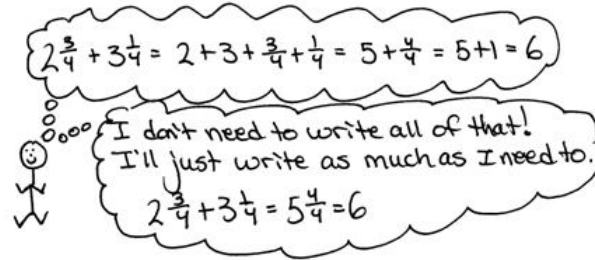 2 3/4 + 3 1/4 = 2 + 3 + 3/4 + 1/4 = 5 + 4/4 = 5 + 1 = 6
I don't need to write all of that!
I'll just write as much as I need to.
2 3/4 + 3 1/4 = 5 4/4 = 6